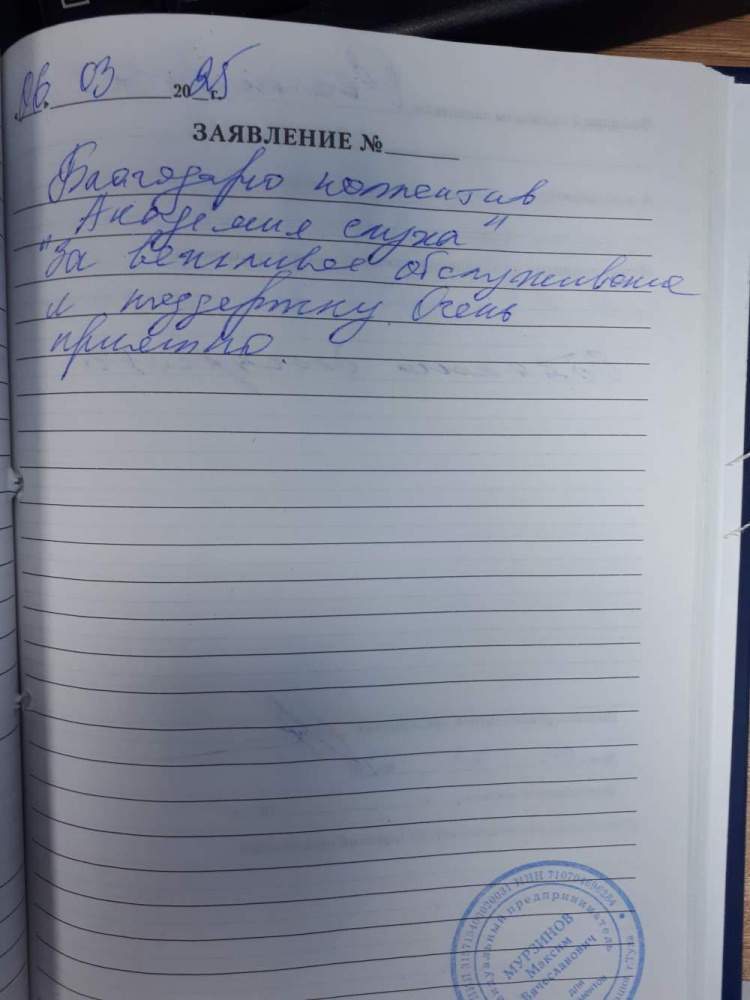 26. 03 2025 г.
ЗАЯВЛЕНИЕ №
Благодарю коллектив
"Академия слуха"
За вежливое обслуживание
и поддержку. Очень
приятно.
ИНН 710704696284
МУРЗИНОВ
Максим
Вячеславович
для